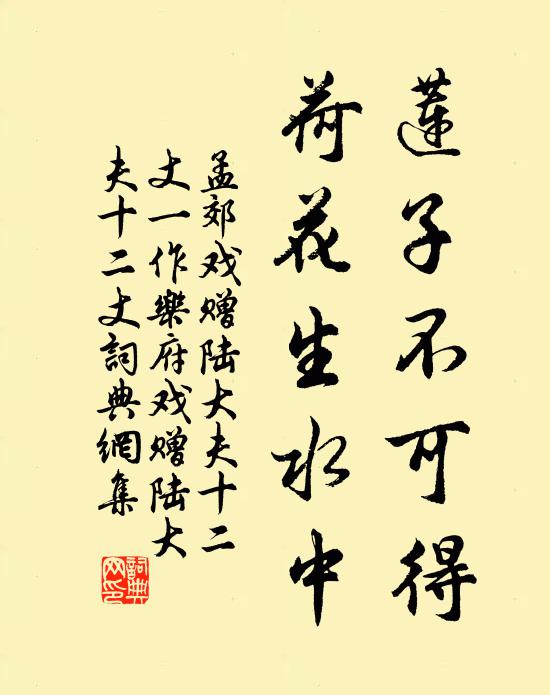 蓮子不可得
荷花生水中
孟郊戏赠陆大夫十二
丈一作樂府戏赠陆大
夫十二丈詞典網集
詞典
网印